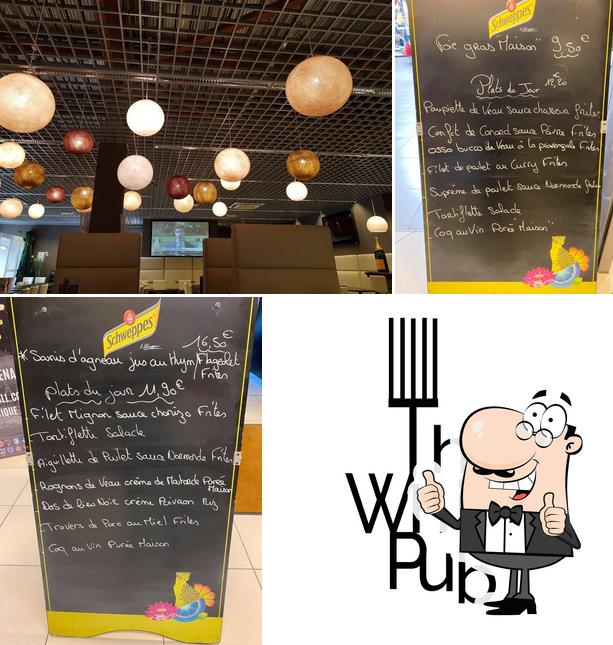 Schweppes
Foie gras "Maison" 9,50€
Plats du Jour 12,20€
Paupiette de Veau sauce chasseur frites
Confit de Canard sauce Poivre Frites
osso bucco de Veau à la provençale Frites
Filet de poulet au Curry Frites
Suprême de poulet sauce Normande
Tartiflette Salade
Coq au Vin Purée Maison"
Schweppes
16,50€
* Souris d'agneau jus au thym / Flageolet
/ Frites
plats du jour 11,90€
Filet Mignon sauce chorizo Frites
Tartiflette Salade
Aiguillette de Poulet sauce Normande Frites
Rognons de Veau crème de Moutarde Purée
Maison
Dos de lieu Noir crème Poivron Riz
Travers de Porc au Miel Frites
Coq au Vin Purée Maison
Th
Wh
Pub